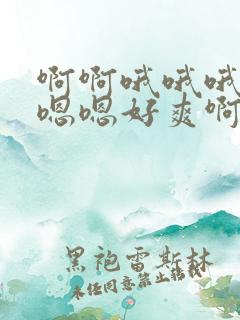 啊啊哦哦哦
嗯嗯好爽啊
黑袍雷斯林
未经同意禁止转载